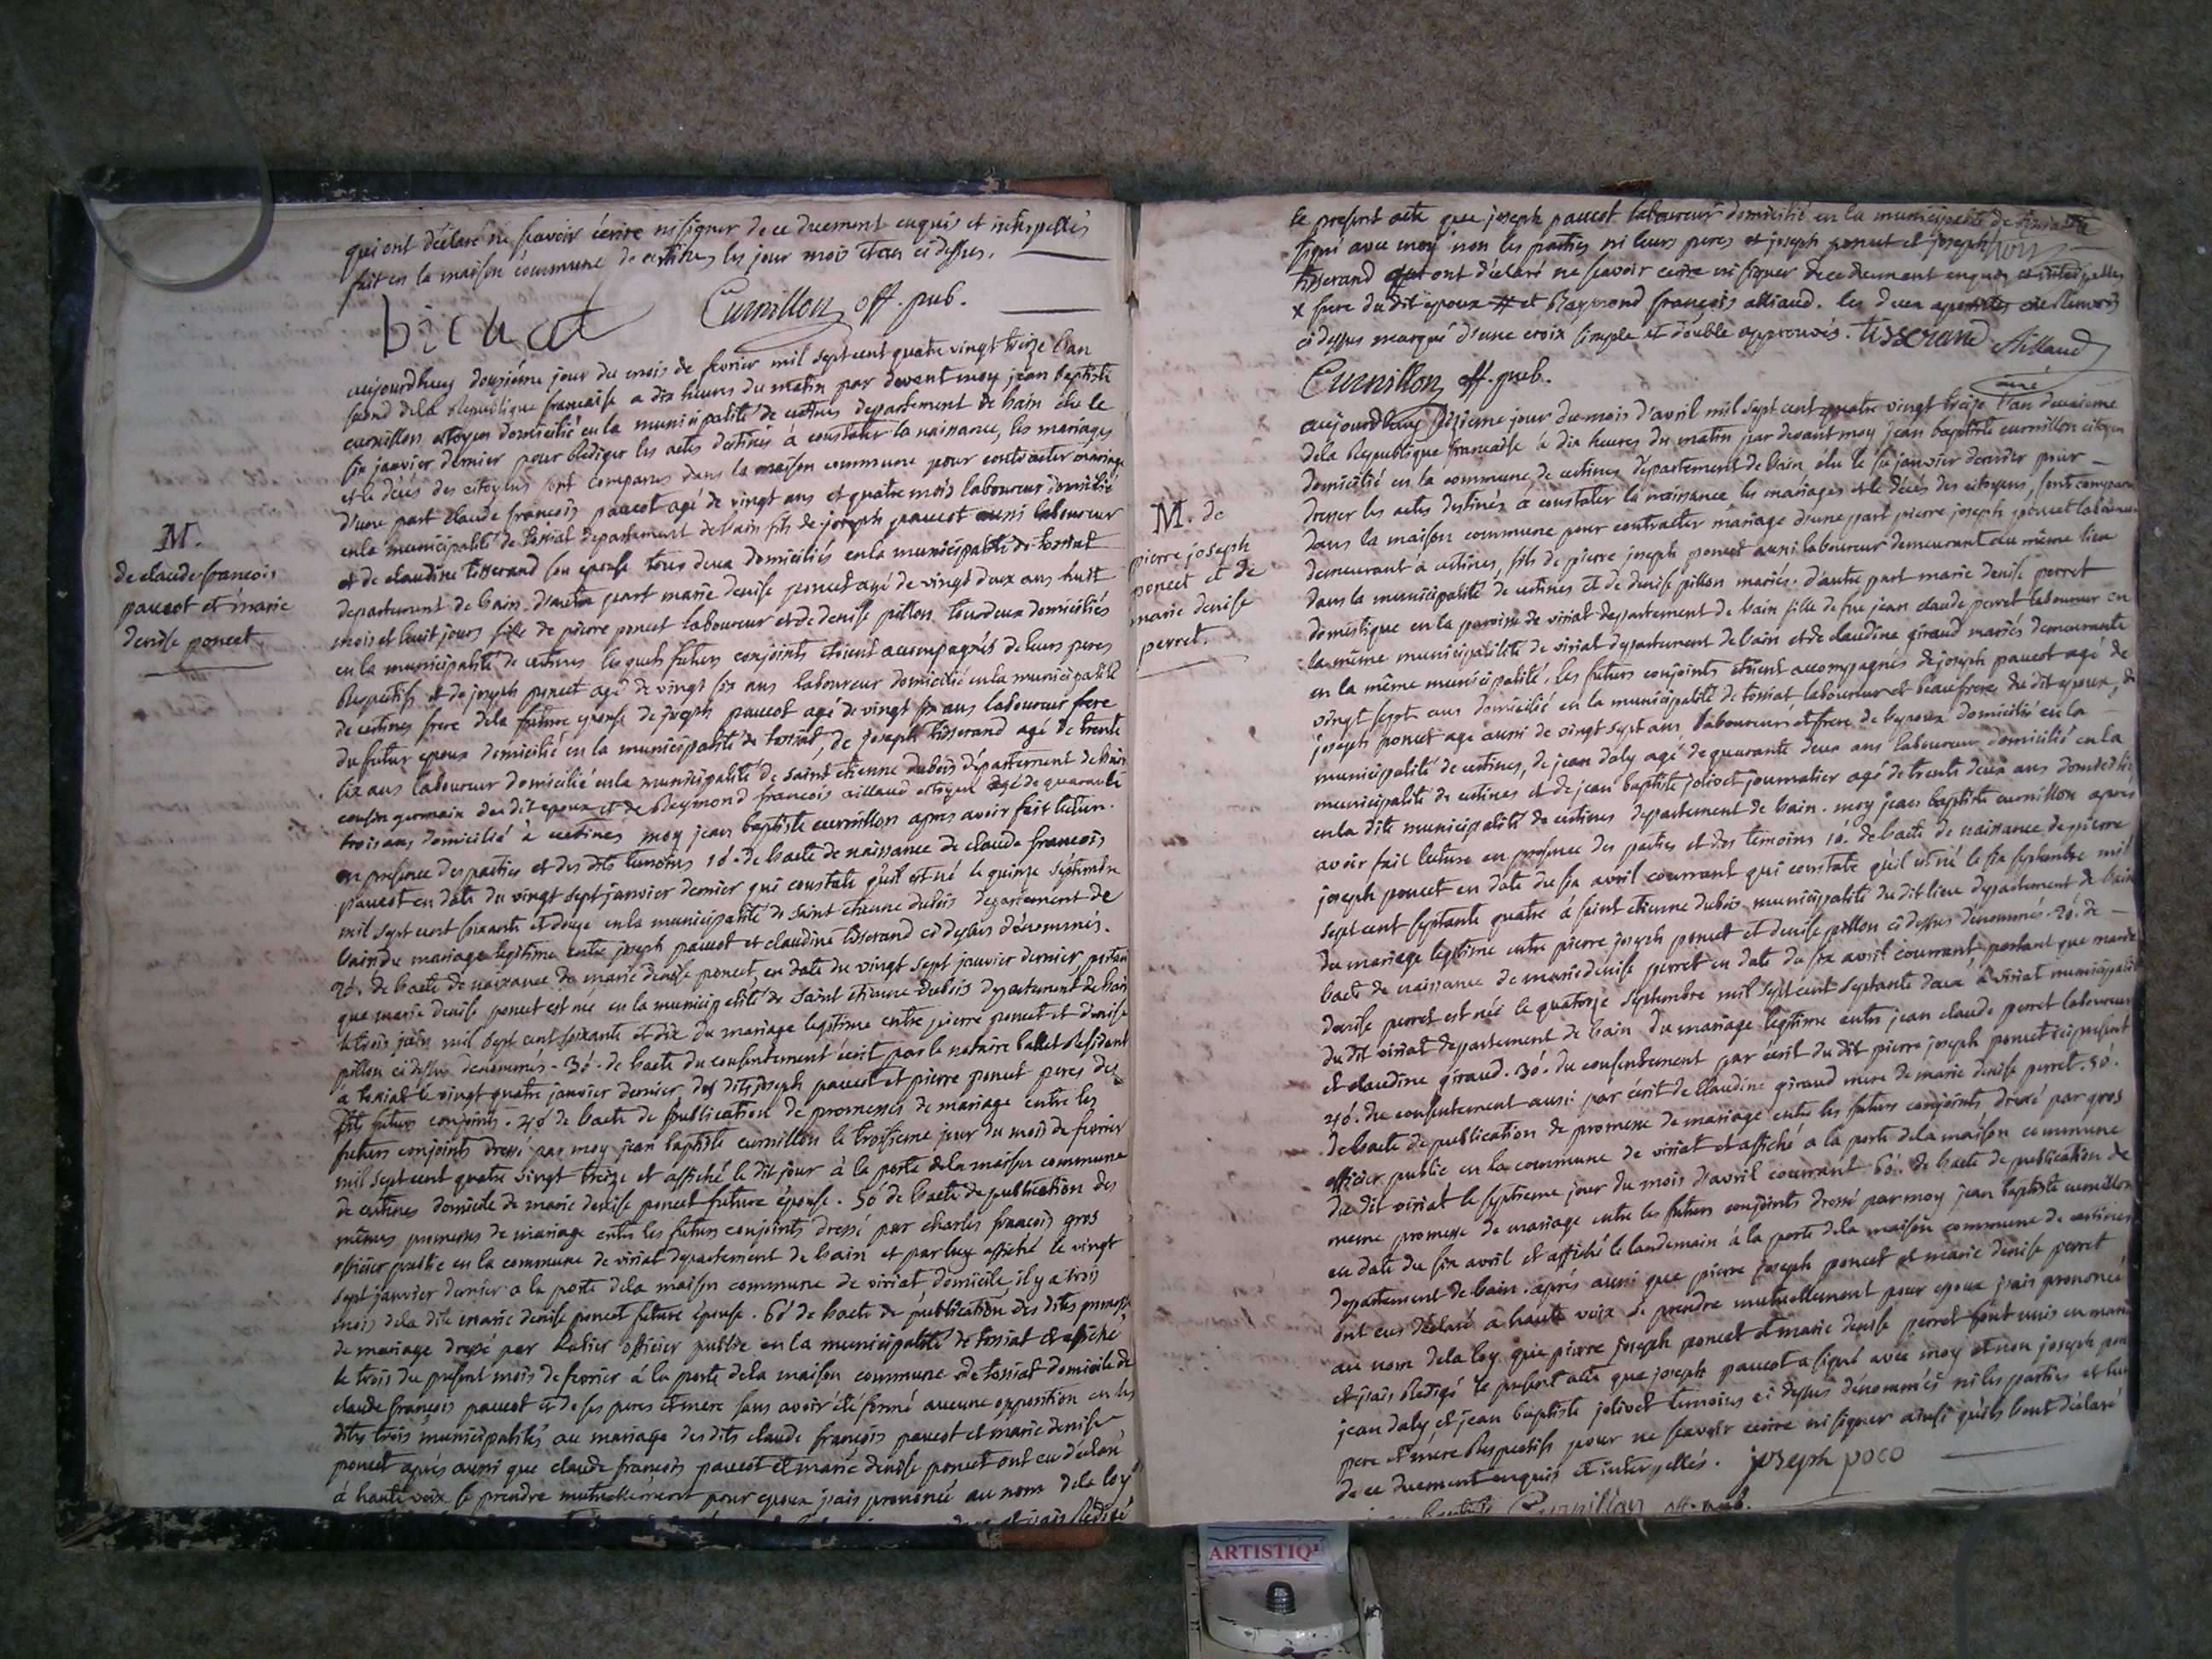 qui ont déclaré ne scavoir écrire ni signer de ce duement enquis et interpellés
fait en la maison commune de certines les jour mois et an ci dessus.
bicuat
Curnillon off. pub.
aujourdhuy douzième jour du mois de fevrier mil sept cent quatre vingt treize l'an
second dela Republique francaise a dix heures du matin par devant moy jean baptiste
curnillon citoyen domicilié en la municipalité de certines departement de lain élu le
six janvier dernier pour Rediger les actes destinés à constater la naissance, les mariages
et le décès des citoyens sont comparus dans la maison commune pour contracter mariage
d'une part claude francois paucot agé de vingt ans et quatre mois laboureur domicilié
en la municipalité de tossiat departement de lain fils de joseph paucot aussi laboureur
et de claudine tisserand son epouse tous deux domiciliés en la municipalité de tossiat
departement de lain. d'autre part marie denise poncet agé de vingt deux ans huit
mois et huit jours fille de pierre poncet laboureur et de denise pillon tous deux domiciliés
en la municipalité de certines lesquels futurs conjoints étoient acompagnés de leurs peres
Respectifs et de joseph poncet agé de vingt six ans laboureur domicilié en la municipalité
de certines frere dela future epouse de joseph paucot agé de vingt six ans laboureur frere
du futur epoux domicilié en la municipalité de tossiat, de joseph tisserand agé de trente
six ans laboureur domicilié en la municipalité de saint etienne dubois département de lain
cousin germain du dit epoux et de Raymond francois aillaud citoyen agé de quarante
trois ans domicilié à certines moy jean baptiste curnillon apres avoir fait lecture
en presence des parties et des dits temoins 1ò. de l'acte de naissance de claude francois
paucot en date du vingt sept janvier dernier qui constate qu'il est né le quinze septembre
mil sept cent soixante et douze en la municipalité de saint etienne dubois departement de
lain du mariage legitime entre joseph paucot et claudine tisserand ci dessus dénommés.
2ò. de l'acte de naissance de marie denise poncet, en date du vingt sept janvier dernier portant
que marie denise poncet est née en la municipalité de saint etienne dubois departement de lain
le trois juin mil sept cent soixante et dix du mariage legitime entre pierre poncet et denise
pillon ci dessus denommés - 3ò. de l'acte du consentement écrit par le notaire ballet Resident
à tossiat le vingt quatre janvier dernier des dits joseph paucot et pierre poncet peres des
dits futurs conjoints. 4ò de l'acte de publication de promesses de mariage entre les
futurs conjoints dressé par moy jean baptiste curnillon le troisieme jour du mois de fevrier
mil sept cent quatre vingt treize et affiché le dit jour à la porte dela maison commune
de certines domicile de marie denise poncet future épouse. 5ò de l'acte de publication des
mêmes promesses de mariage entre les futurs conjoints dressé par charles francois gros
officier public en la commune de viriat departement de lain et par luy affiché le vingt
sept janvier dernier a la porte dela maison commune de viriat, domicile il y a trois
mois dela dite marie denise poncet future épouse. 6ò de l'acte de publication des dites promesses
de mariage dressé par officier public en la municipalité de tossiat et affiché
le trois du present mois de fevrier à la porte dela maison commune de tossiat domicile de
claude francois paucot et de ses peres et mere sans avoir été formé aucune opposition en les
dites trois municipalités au mariage des dits claude francois paucot et marie denise
poncet après aussi que claude francois paucot et marie denise poncet ont eu déclaré
à haute voix se prendre mutuellement pour epoux j'ais prononcé au nom dela loy
et j'ais Redigé
M.
de claude francois
paucot et marie
denise poncet
le present acte que joseph paucot laboureur domicilié en la municipalité de tossiat
signé avec moy non les parties ni leurs peres et joseph poncet et joseph
tisserand qui ont déclaré ne scavoir ecrire ni signer de ce duement enquis et interpellés
x frere du dit epoux # et Raymond françois alliaud. les deux
ci dessus marqué d'une croix simple et double approuvés. tisserand Aillaud
Curnillon off. pub.
aujourdhuy seizieme jour du mois d'avril mil sept cent quatre vingt treize l'an deuxieme
dela Republique francaise à dix heures du matin par devant moy jean baptiste curnillon citoyen
domicilié en la commune de certines, département de lain élu le six janvier dernier pour
dresser les actes destinés a constater la naissance les mariages et le décès des citoyens, sont comparus
dans la maison commune pour contracter mariage d'une part pierre joseph poncet laboureur
demeurant à certines, fils de pierre joseph poncet aussi laboureur demeurant au même lieu
dans la municipalité de certines et de denise pillon mariés. d'autre part marie denise perret
domestique en la paroisse de viriat departement de lain fille de feu jean claude perret laboureur en
la même municipalité de viriat departement de lain et de claudine giraud mariés demeurante
en la même municipalité. les futurs conjoints étoient accompagnés de joseph paucot agé de
vingt sept ans domicilié en la municipalité de tossiat laboureur et beaufrere du dit epoux, de
joseph poncet agé aussi de vingt sept ans laboureur et frere de l'epoux domicilié en la
municipalité de certines, de jean daly agé de quarante deux ans laboureur domicilié en la
municipalité de certines et de jean baptiste jolivet journalier agé de trente deux ans domicilié
en la dite municipalité de certines departement de lain. moy jean baptiste curnillon apres
avoir fait lecture en presence des parties et des temoins 1ò. de l'acte de naissance de pierre
joseph poncet en date du six avril courrant qui constate qu'il est né le six septembre mil
sept cent septante quatre à saint etienne dubois municipalité du dit lieu departement de lain
du mariage legitime entre pierre joseph poncet et denise pillon ci dessus dénommés. 2ò. de
l'acte de naissance de marie denise perret en date du six avril courrant portant que marie
denise perret est née le quatorze septembre mil sept cent septante deux à viriat municipalité
du dit viriat departement de lain du mariage legitime entre jean claude perret laboureur
et claudine giraud. 3ò. du consentement par écrit du dit pierre joseph poncet ici present
4ò. du consentement aussi par écrit de claudine giraud mere de marie denise perret. 5ò.
de l'acte de publication de promesse de mariage entre les futurs conjoints dressé par gros
officier public en la commune de viriat et affiché a la porte dela maison commune
du dit viriat le septieme jour du mois d'avril courrant. 6ò. de l'acte de publication de
meme promesse de mariage entre les futurs conjoints dressé par moy jean baptiste curnillon
en date du six avril et affiché le landemain à la porte dela maison commune de certines
departement de lain. après aussi que pierre joseph poncet et marie denise perret
ont eus déclaré a haute voix se prendre mutuellement pour epoux j'ais prononcé
au nom dela loy que pierre joseph poncet et marie denise perret sont unis en mariage
et j'ais Redigé le present acte que joseph paucot a signé avec moy et non joseph poncet
jean daly et jean baptiste jolivet temoins ci dessus dénommés ni les parties et leur
pere et mere Respectifs pour ne scavoir ecrire ni signer ainsi qu'ils l'ont déclaré
de ce duement enquis et interpellés. joseph poco
Curnillon off. pub.
M. de
pierre joseph
poncet et de
marie denise
perret.
ARTISTIQ